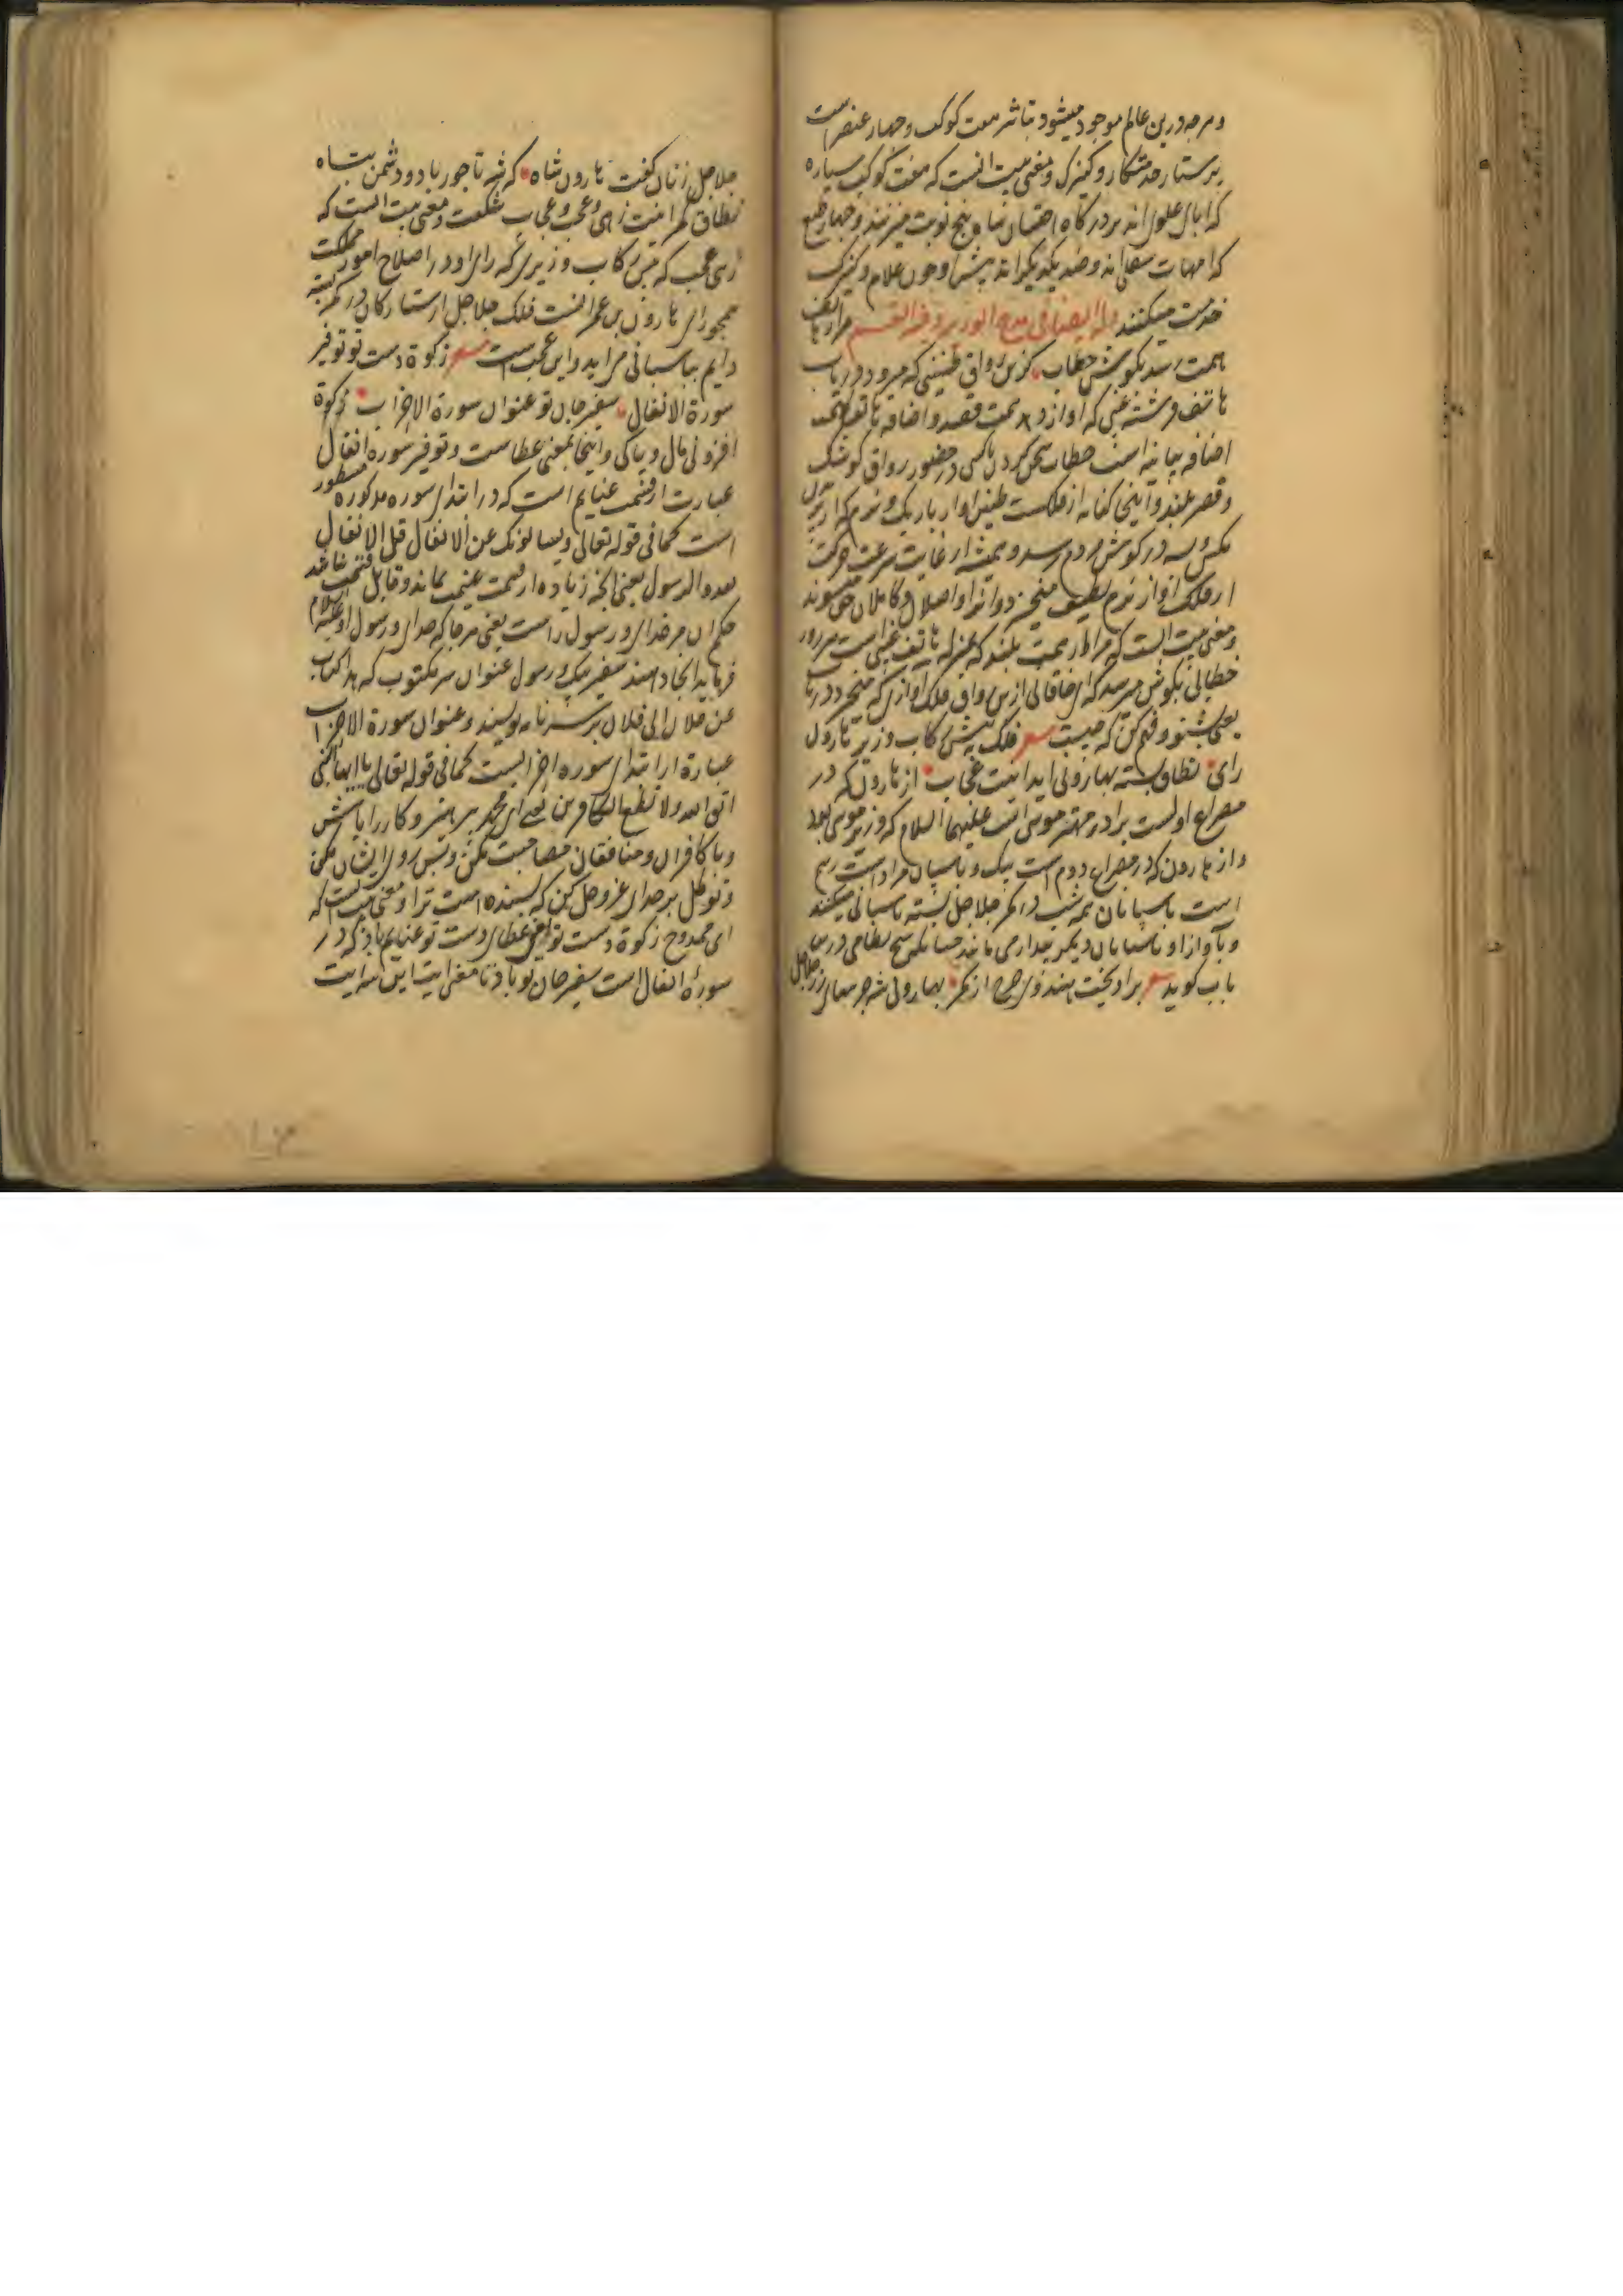 و هرچه درین عالم موجود میشود بتاثیر هفت کوکب و چهار عنصر است
پرستار خدمتکار و کنیزک و معنی بیت انست که هفت کوکب سیاره
که ابای علوی اند بر درگاه احتسان شاه پنج نوبت میزنند و چهار طبع
که امهات سفلی اند و ضد یکدیگراند پیش او چون غلام و کنیزک
خدمت میکنند وله ایضا فی مدح الوزیر و فیه القسم مرا ز هاتف
همت رسد بگوش خطاب کزین رواق طنینی که میرود دریاب
هاتف فرشته غیبی که اواز دهد همت قصد و اضافه هاتف بهمت
اضافه بیانیه است خطاب سخن کردن باکسی در حضور رواق کوشک
و قصر بلند و اینجا کنایه از فلکست طنین اواز باریک و نرم که از پریدن
مکس و پشه در کوش مردم رسد و همیشه از غایت سرعت حرکت
از فلک اواز نرم لطیف میخیزد و انرا واصلان و کاملان حق میشنوند
و معنی بیت انست که مرا از همت بلند که بمنزله هاتف غیبی است هر روز
خطابی بکوش میرسد که ای خاقانی ازین رواق فلک اوازی که میخیزد دریاب
یعنی بشنو و فهم کن که چیست شعر فلک به پیش رکاب وزیر هارون
رای نطاق بسته بهارونی اید اینت عجاب از هارون که در
مصراع اولست برادر مهتر موسی است علیهما السلام که وزیر موسی بود
و از هارون که در مصراع دوم است پیک و پاسبان مراد است رسم
است پاسبانان همه شب در کمر جلاجل بسته پاسبانی میکنند
و بآواز او پاسبانان دیگر بیدار می مانند چنانکه شیخ نظامی درین
باب کوید شعر براویخت هندوی چرخ از کمر بهارونی شه جرسهای زر جلاجل
جلاجل زنان کفت هارون شاه که شه تاجور باد و دشمن تباه
نطاق کمر اینت زهی و عجب و عجاب شکفت و معنی بیت انست که
زهی عجب که پیش رکاب وزیری که رای او در اصلاح امور مملکت
همچو رای هارون بن عمرانست فلک جلاجل از ستارکان در کمر بسته
دایم بپاسبانی می اید و این عجب است شعر زکوة دست تو توفیر
سورة الانفال سفیر جان تو عنوان سورة الاحزاب زکوة
افزونی مال و پاکی و اینجا بمعنی عطاست و توفیر سوره انفال
عبارت از قسمت غنایم است که در ابتدای سوره مذکوره مسطور
است کما فی قوله تعالی و یسالونک عن الانفال قل الانفال
لله و الرسول یعنی انچه زیاده از قسمت غنیمت بماند و قابل قسمت نباشد
حکم ان مر خدای و رسول راست یعنی هر جا که خدای و رسول او علیه السلام
فرماید انجا دهند سفیر پیک و رسول عنوان سر مکتوب که هذا کتاب
من فلان الی فلان بر سر نامه نویسند و عنوان سورة الاحزاب
عبارة از ابتدای سوره احزابست کما فی قوله تعالی یا ایها النبی
اتق الله و لا تطع الکافرین یعنی ای محمد پرهیزکار باش
و با کافران و منافقان مصاحبت مکن و پس روی ایشان مکن
و توکل بر خدای عز و جل کن که بسنده است ترا و معنی بیت انست که
ای ممدوح زکوة دست تو یعنی عطای دست تو غنایم باد که در
سورۀ انفال است سفیر جان تو باد تا مغز ایت این سه ایت